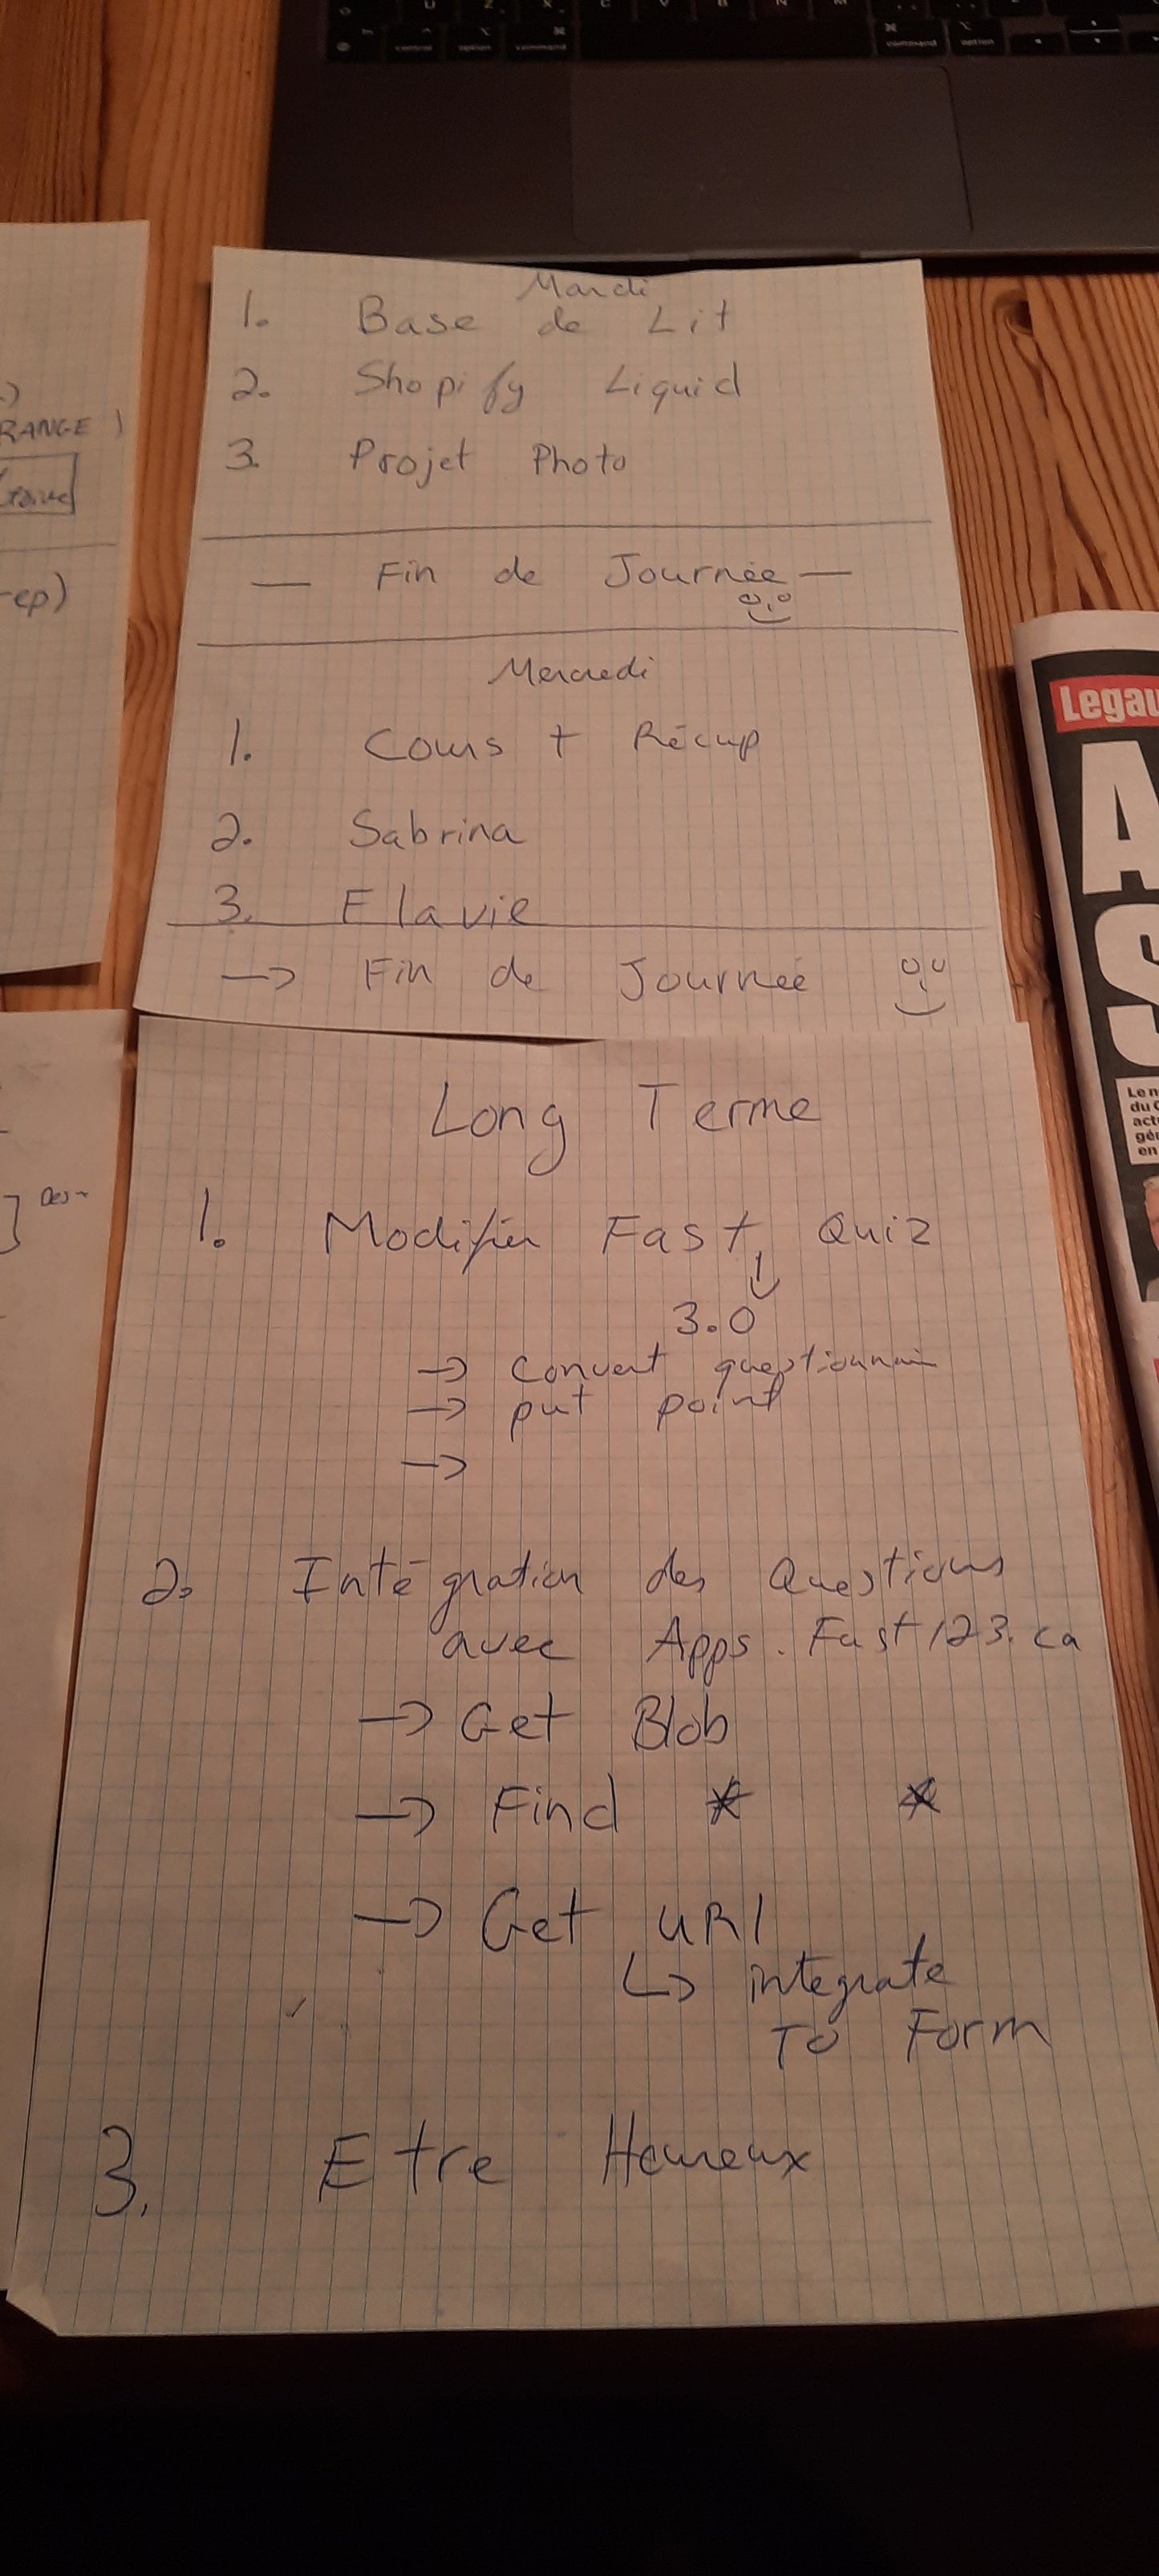 control
option
command
command
option
Z
X
C
V
B
N
M
RANGE)
ep)
Mardi
1. Base de Lit
2. Shopify Liquid
3. Projet Photo
— Fin de Journée —
Mercredi
1. Cours + Récup
2. Sabrina
3. Flavie
→ Fin de Journée
Long Terme
1. Modifier Fast Quiz
3.0
→ Convert questionnair
→ put point
→
2. Intégration des Questions
avec Apps.Fast123.ca
→ Get Blob
→ Find * *
→ Get URI
↳ integrate
To Form
3. Etre Heureux
Legau
A
S
Le n
du C
act
gé
en